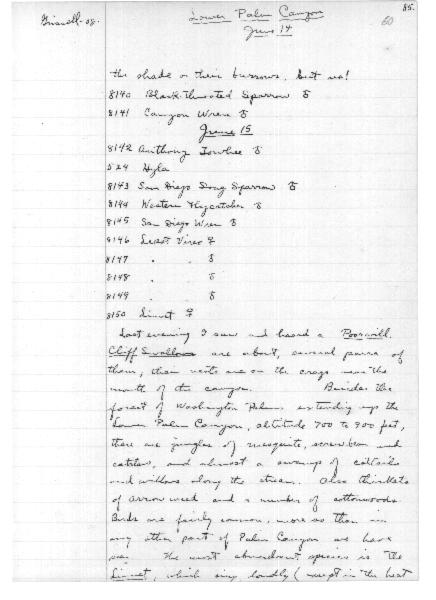 85.
Grinnell-08.
Lower Palm Canyon
60
June 14
the shade or their burrows, but no!
8140 Black-throated Sparrow ♂
8141 Canyon Wren ♂
June 15
8142 Anthony Towhee ♂
524 Hyla
8143 San Diego Song Sparrow ♂
8144 Western Flycatcher ♂
8145 San Diego Wren ♂
8146 Least Vireo ♀
8147 " " ♂
8148 " " ♂
8149 " " ♂
8150 Linnet ♀
Last evening I saw and heard a Poorwill.
Cliff Swallows are about, several pairs of
them; their nests are on the crags near the
mouth of the canyon. Besides the
forest of Washington Palms extending up the
Lower Palm Canyon, altitude 700 to 900 feet,
there are jungles of mesquite, screwbean and
catsclaw, and almost a swamp of cattails
and willows along the stream. Also thickets
of arrowweed and a number of cottonwoods.
Birds are fairly common, more so than in
any other part of Palm Canyon we have
seen. The most abundant species is the
Linnet, which sing loudly (except in the heat